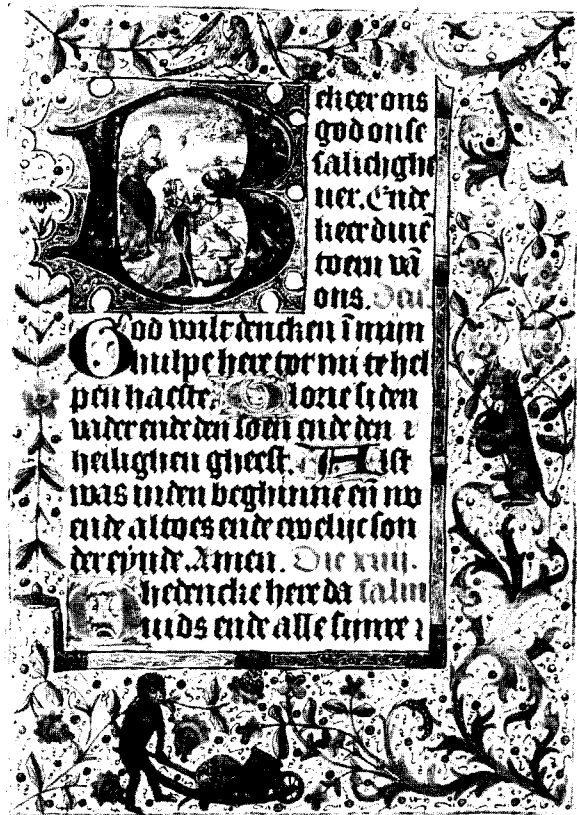 Bekeer ons
god onse
salichghe
uer. Ende
keer dinē
toern vā
ons.
God wilt dencken ī mijn
hulpe here tot mi te hel
pen haeste. Glorie si den
vader ende den soen ende den
heilighen gheest. Alst
was inden beghinne eñ nv
ende altoes ende ewelijc son
der eynde. Amen. Die
Ghedencke here da
uids ende alle sijnre